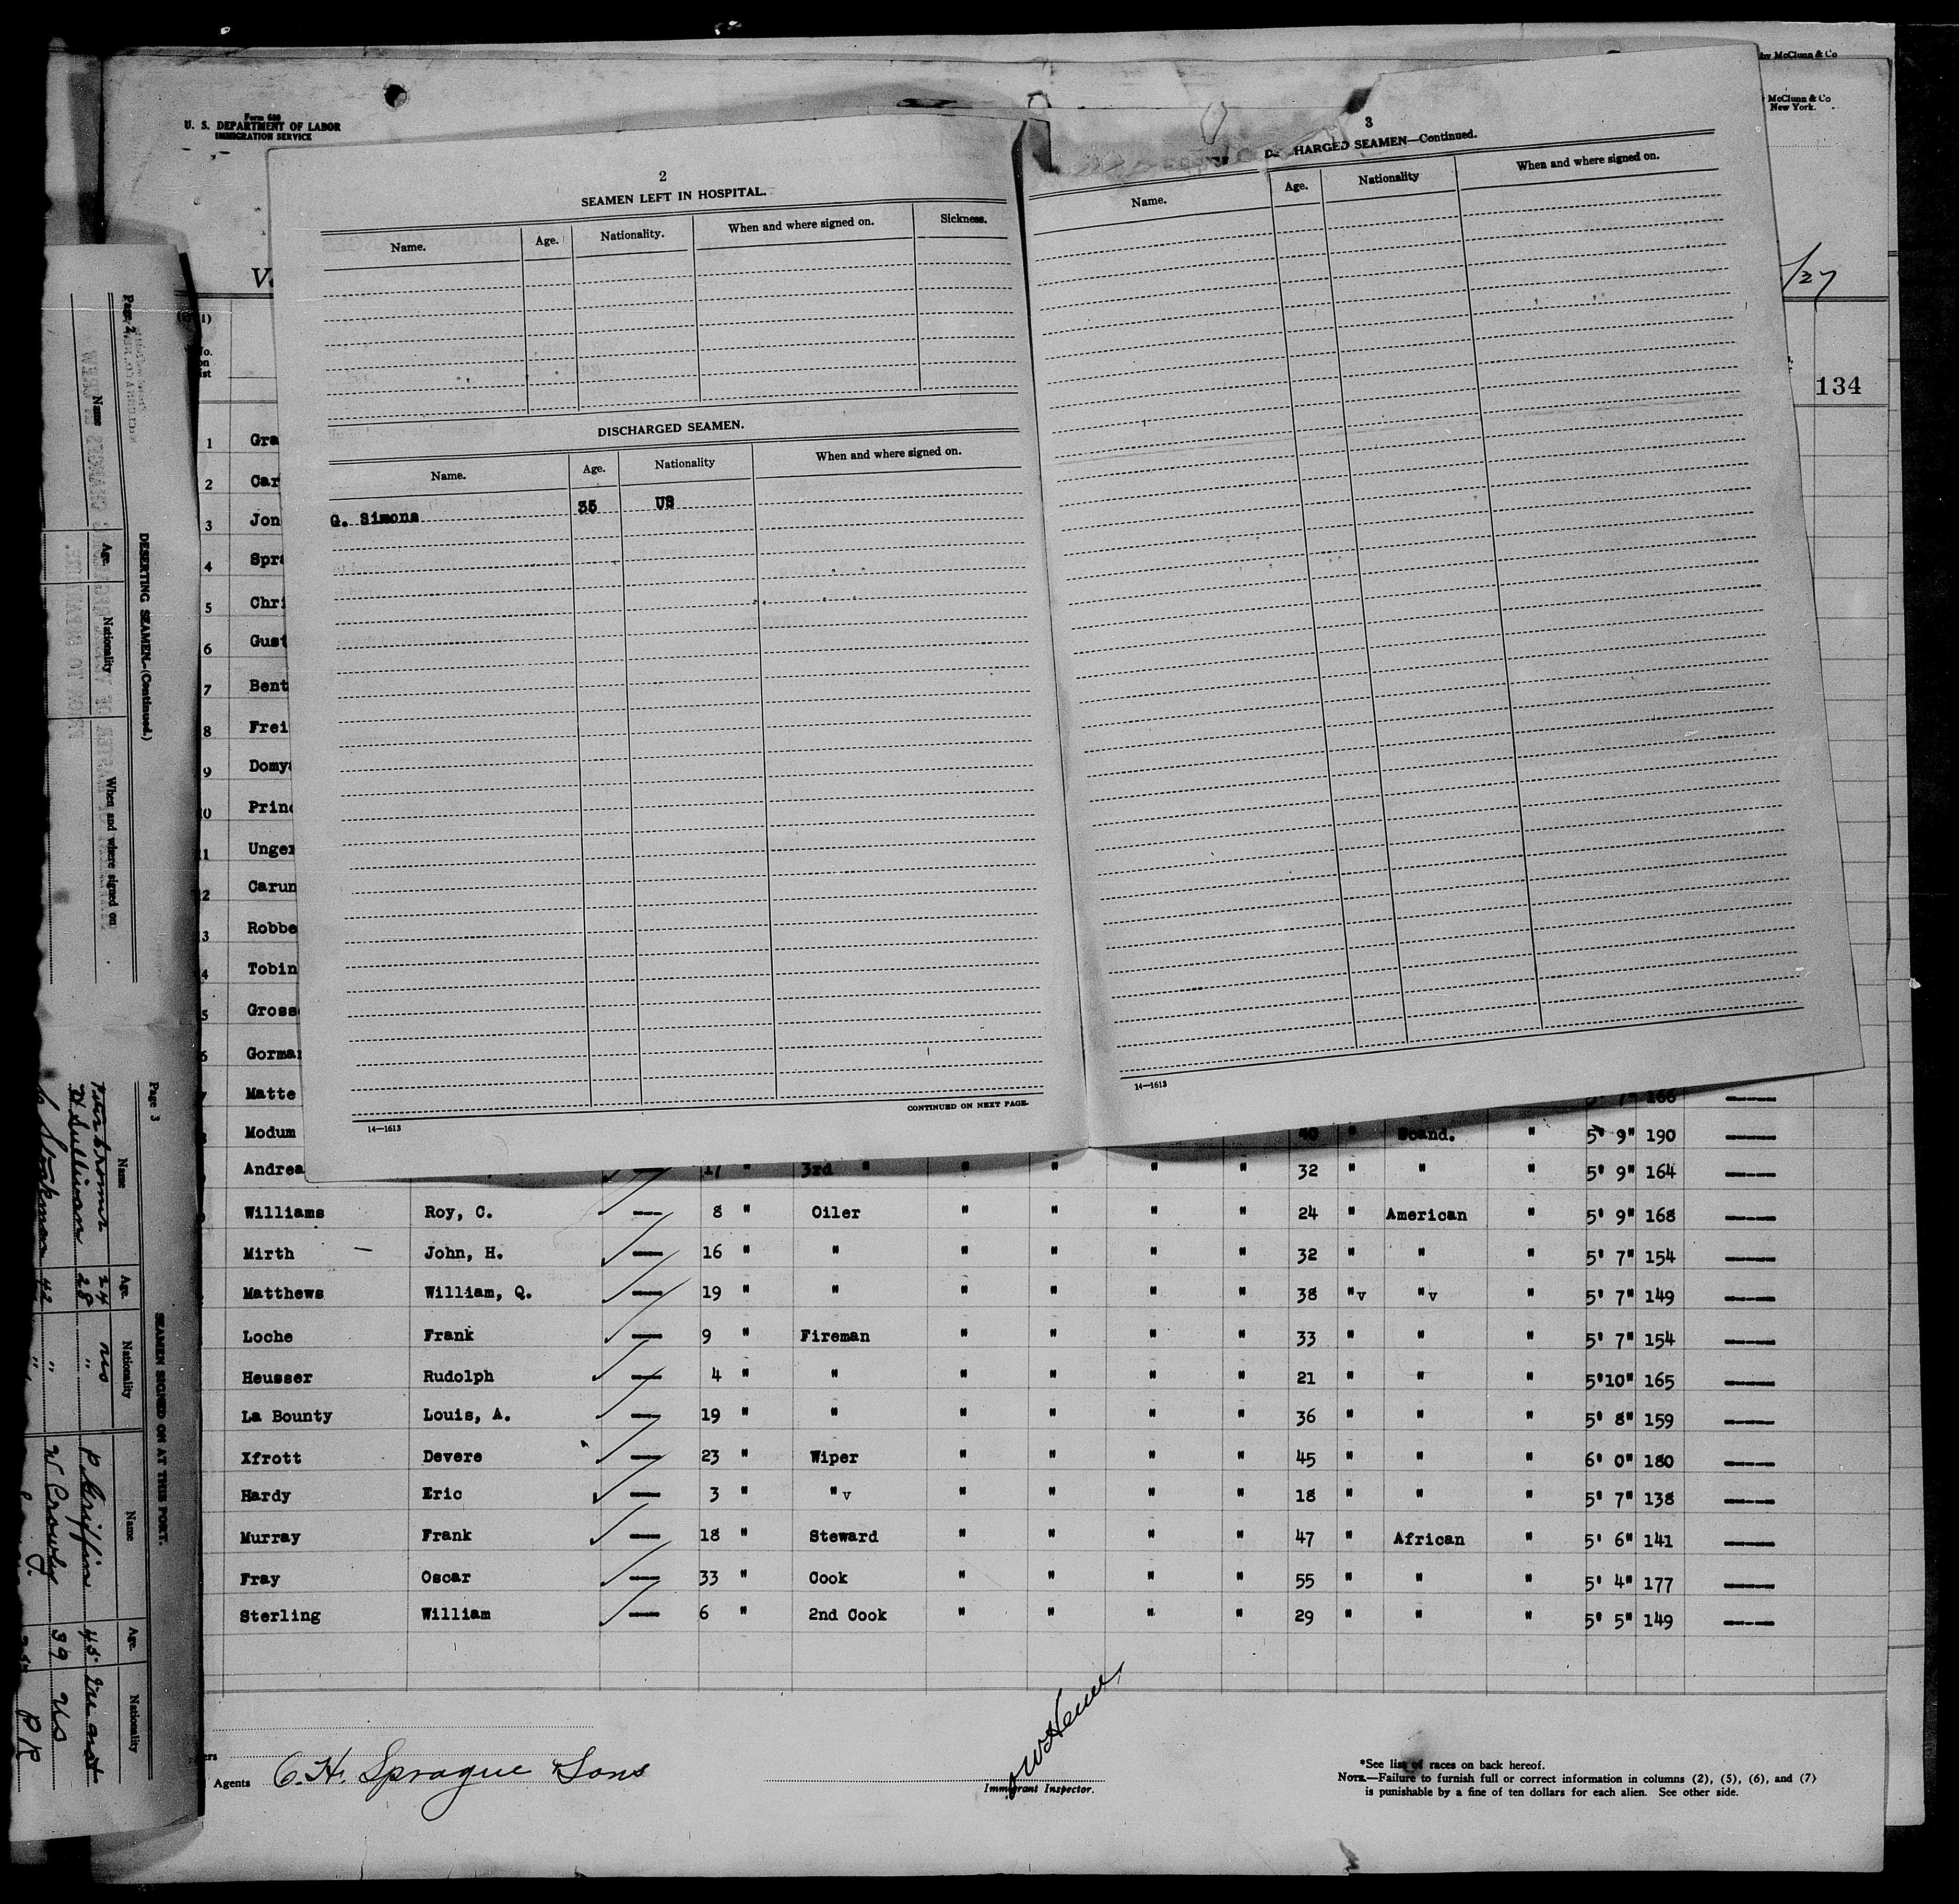 by McClunn & Co
McClunn & Co
New York.
Form 680
U. S. DEPARTMENT OF LABOR
IMMIGRATION SERVICE
/27
134
2
SEAMEN LEFT IN HOSPITAL.
Name. Age. Nationality. When and where signed on. Sickness.
DISCHARGED SEAMEN.
Name. Age. Nationality When and where signed on.
G. Simons 35 US
14—1613
CONTINUED ON NEXT PAGE.
3
DISCHARGED SEAMEN—Continued.
Name. Age. Nationality When and where signed on.
14—1613
1 Gra
2 Car
3 Jon
4 Spra
5 Chri
6 Gust
7 Bent
8 Frei
9 Domy
10 Prin
11 Unger
12 Carun
13 Robbe
14 Tobin
15 Gross
16 Gorman
17 Matte 5' 7" 166
18 Modum 40 " Scand. " 5' 9" 190
Andrea 17 " 3rd " " " " " 32 " " " 5' 9" 164
Williams Roy, C. 8 " Oiler " " " " 24 " American " 5' 9" 168
Mirth John, H. 16 " " " " " " 32 " " " 5' 7" 154
Matthews William, Q. 19 " " " " " " 38 "v "v " 5' 7" 149
Loche Frank 9 " Fireman " " " " 33 " " " 5' 7" 154
Heusser Rudolph 4 " " " " " " 21 " " " 5'10" 165
La Bounty Louis, A. 19 " " " " " " 36 " " " 5' 8" 159
Xfrott Devere 23 " Wiper " " " " 45 " " " 6' 0" 180
Hardy Eric 3 " "v " " " " 18 " " " 5' 7" 138
Murray Frank 18 " Steward " " " " 47 " African " 5' 6" 141
Fray Oscar 33 " Cook " " " " 55 " " " 5' 4" 177
Sterling William 6 " 2nd Cook " " " " 29 " " " 5' 5" 149
Agents C. H. Sprague Sons
Immigrant Inspector.
*See list of races on back hereof.
NOTE.—Failure to furnish full or correct information in columns (2), (5), (6), and (7)
is punishable by a fine of ten dollars for each alien. See other side.
Page 2
DESERTING SEAMEN.—(Continued.)
Name Age. Nationality When and where signed on
Page 3
SEAMEN SIGNED ON AT THIS PORT.
Name Age. Nationality Name Age. Nationality
24 US P. Griffin 45
D Sullivan 28 " W Crowley 39 US
42 " PR